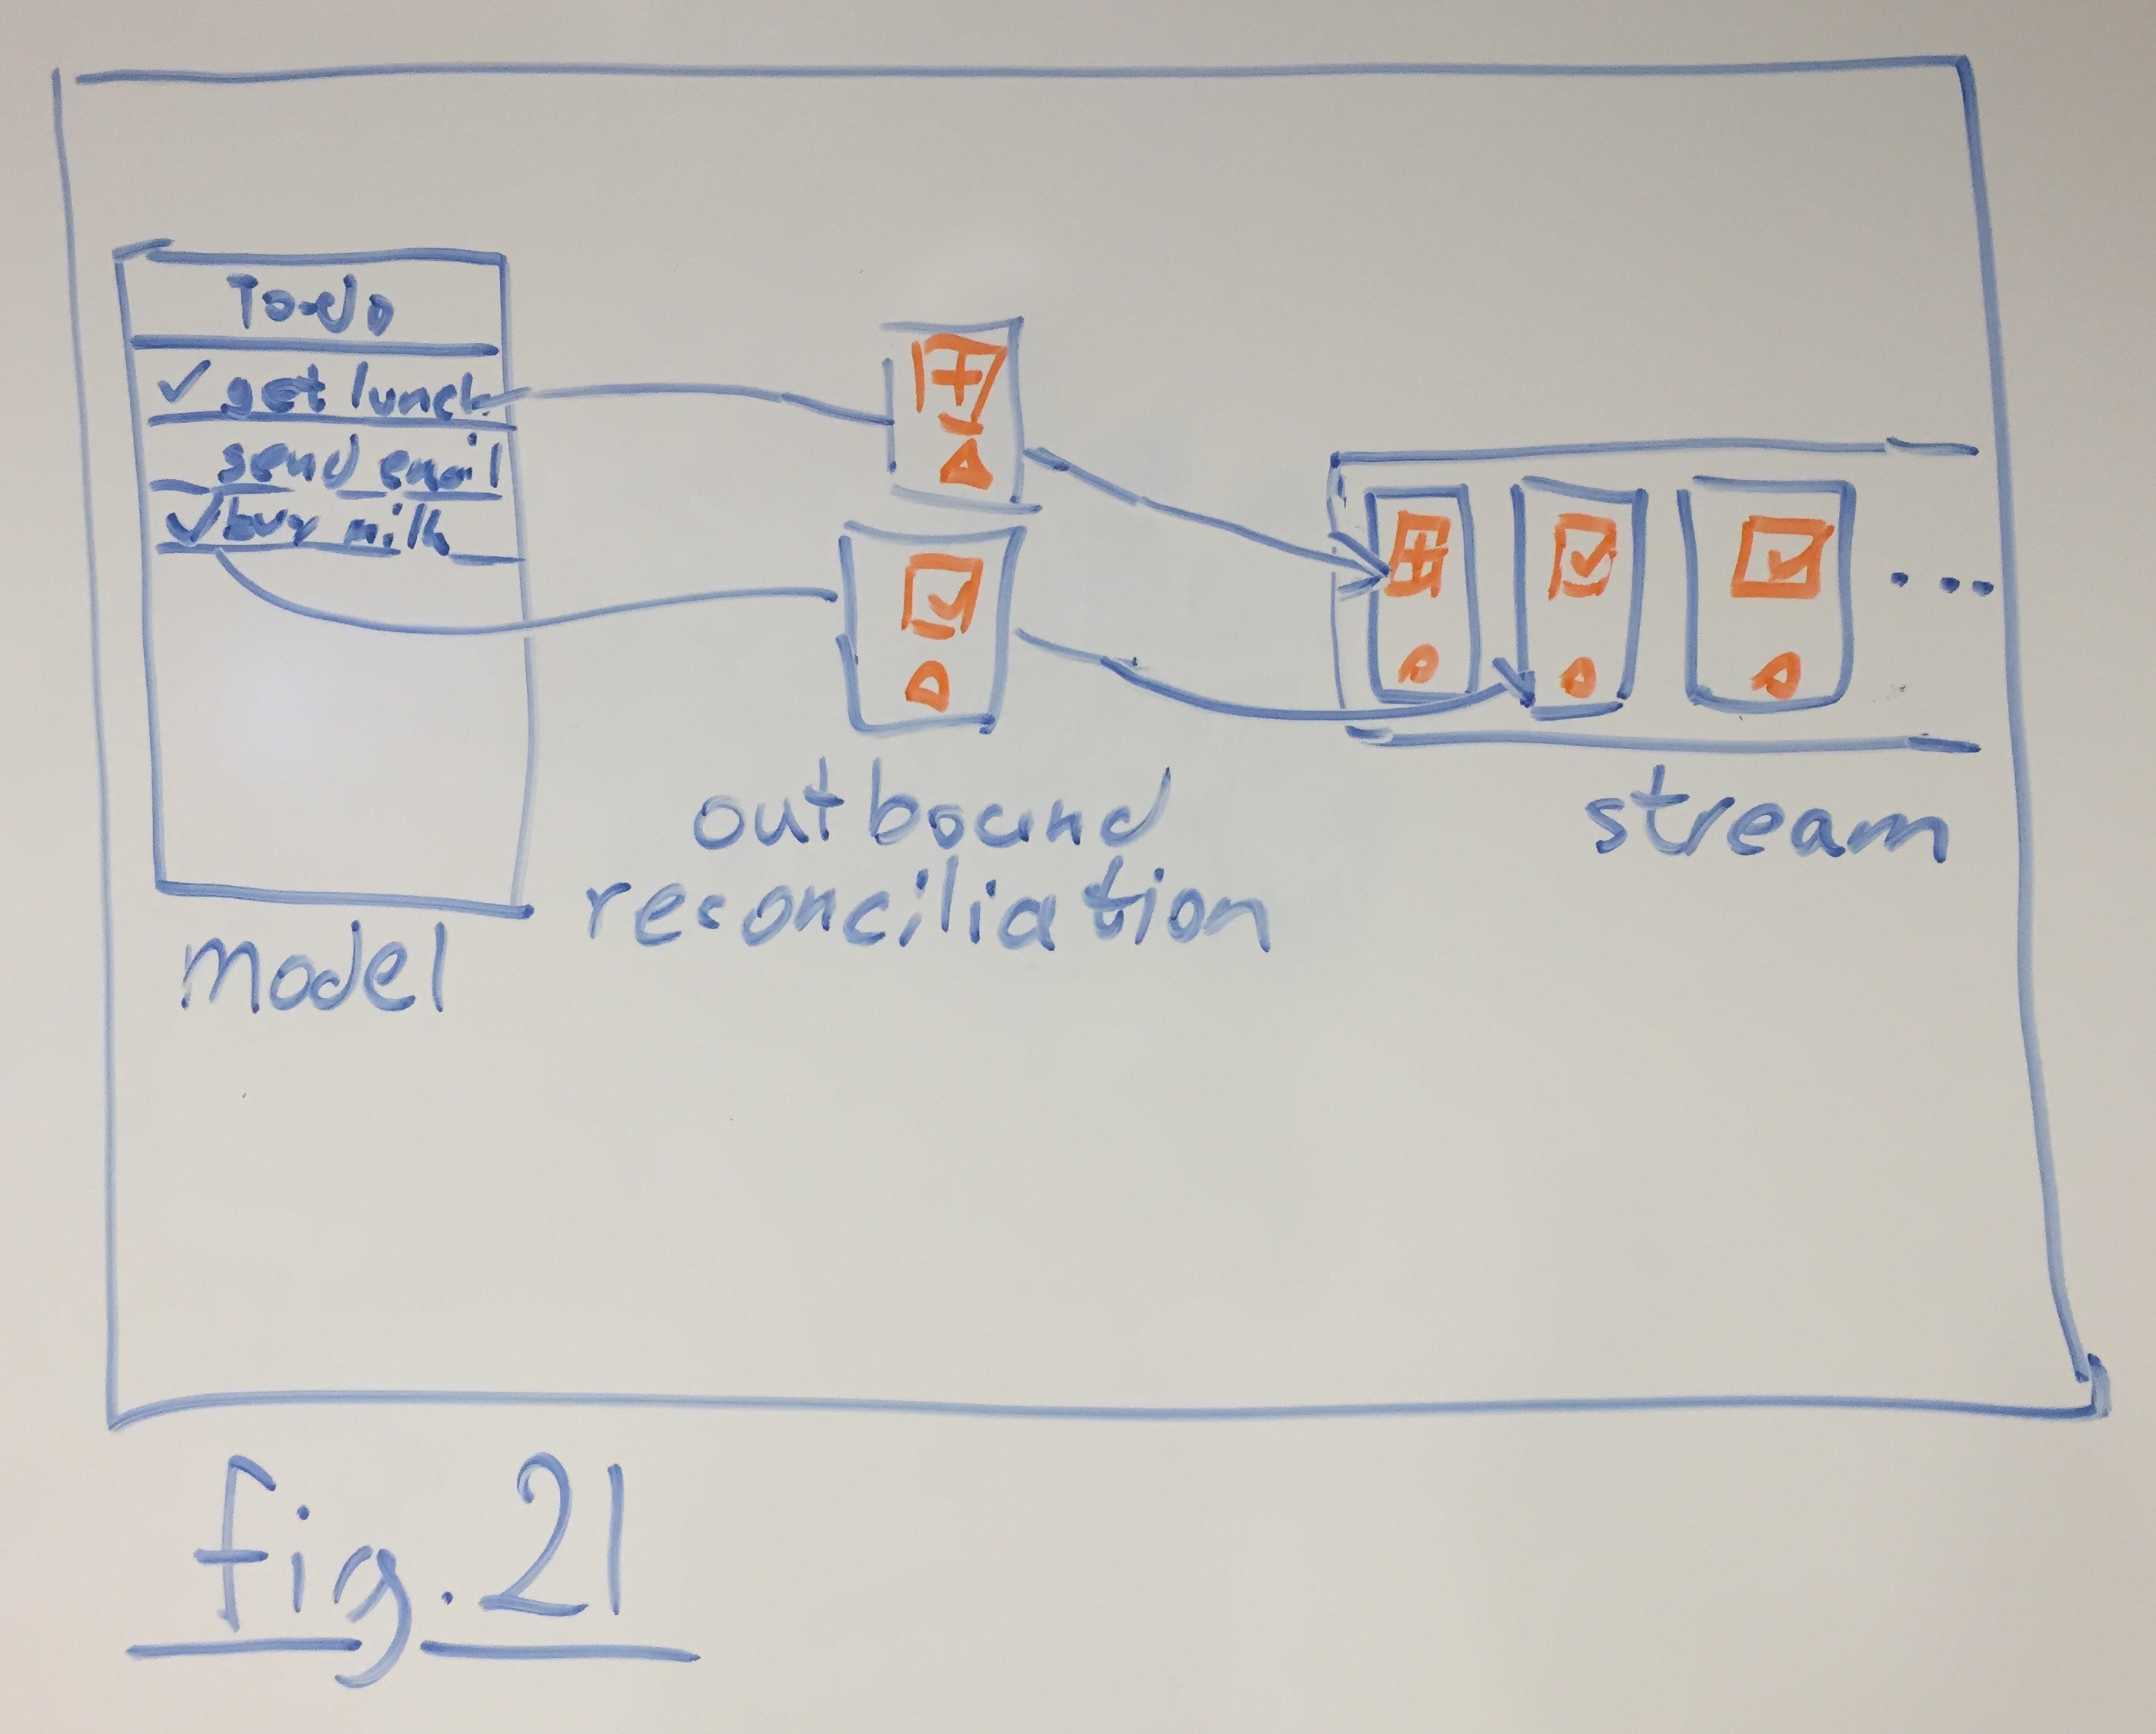 To-do
✓ get lunch
send email
✓ buy milk
model
outbound
reconciliation
stream
...
fig. 21